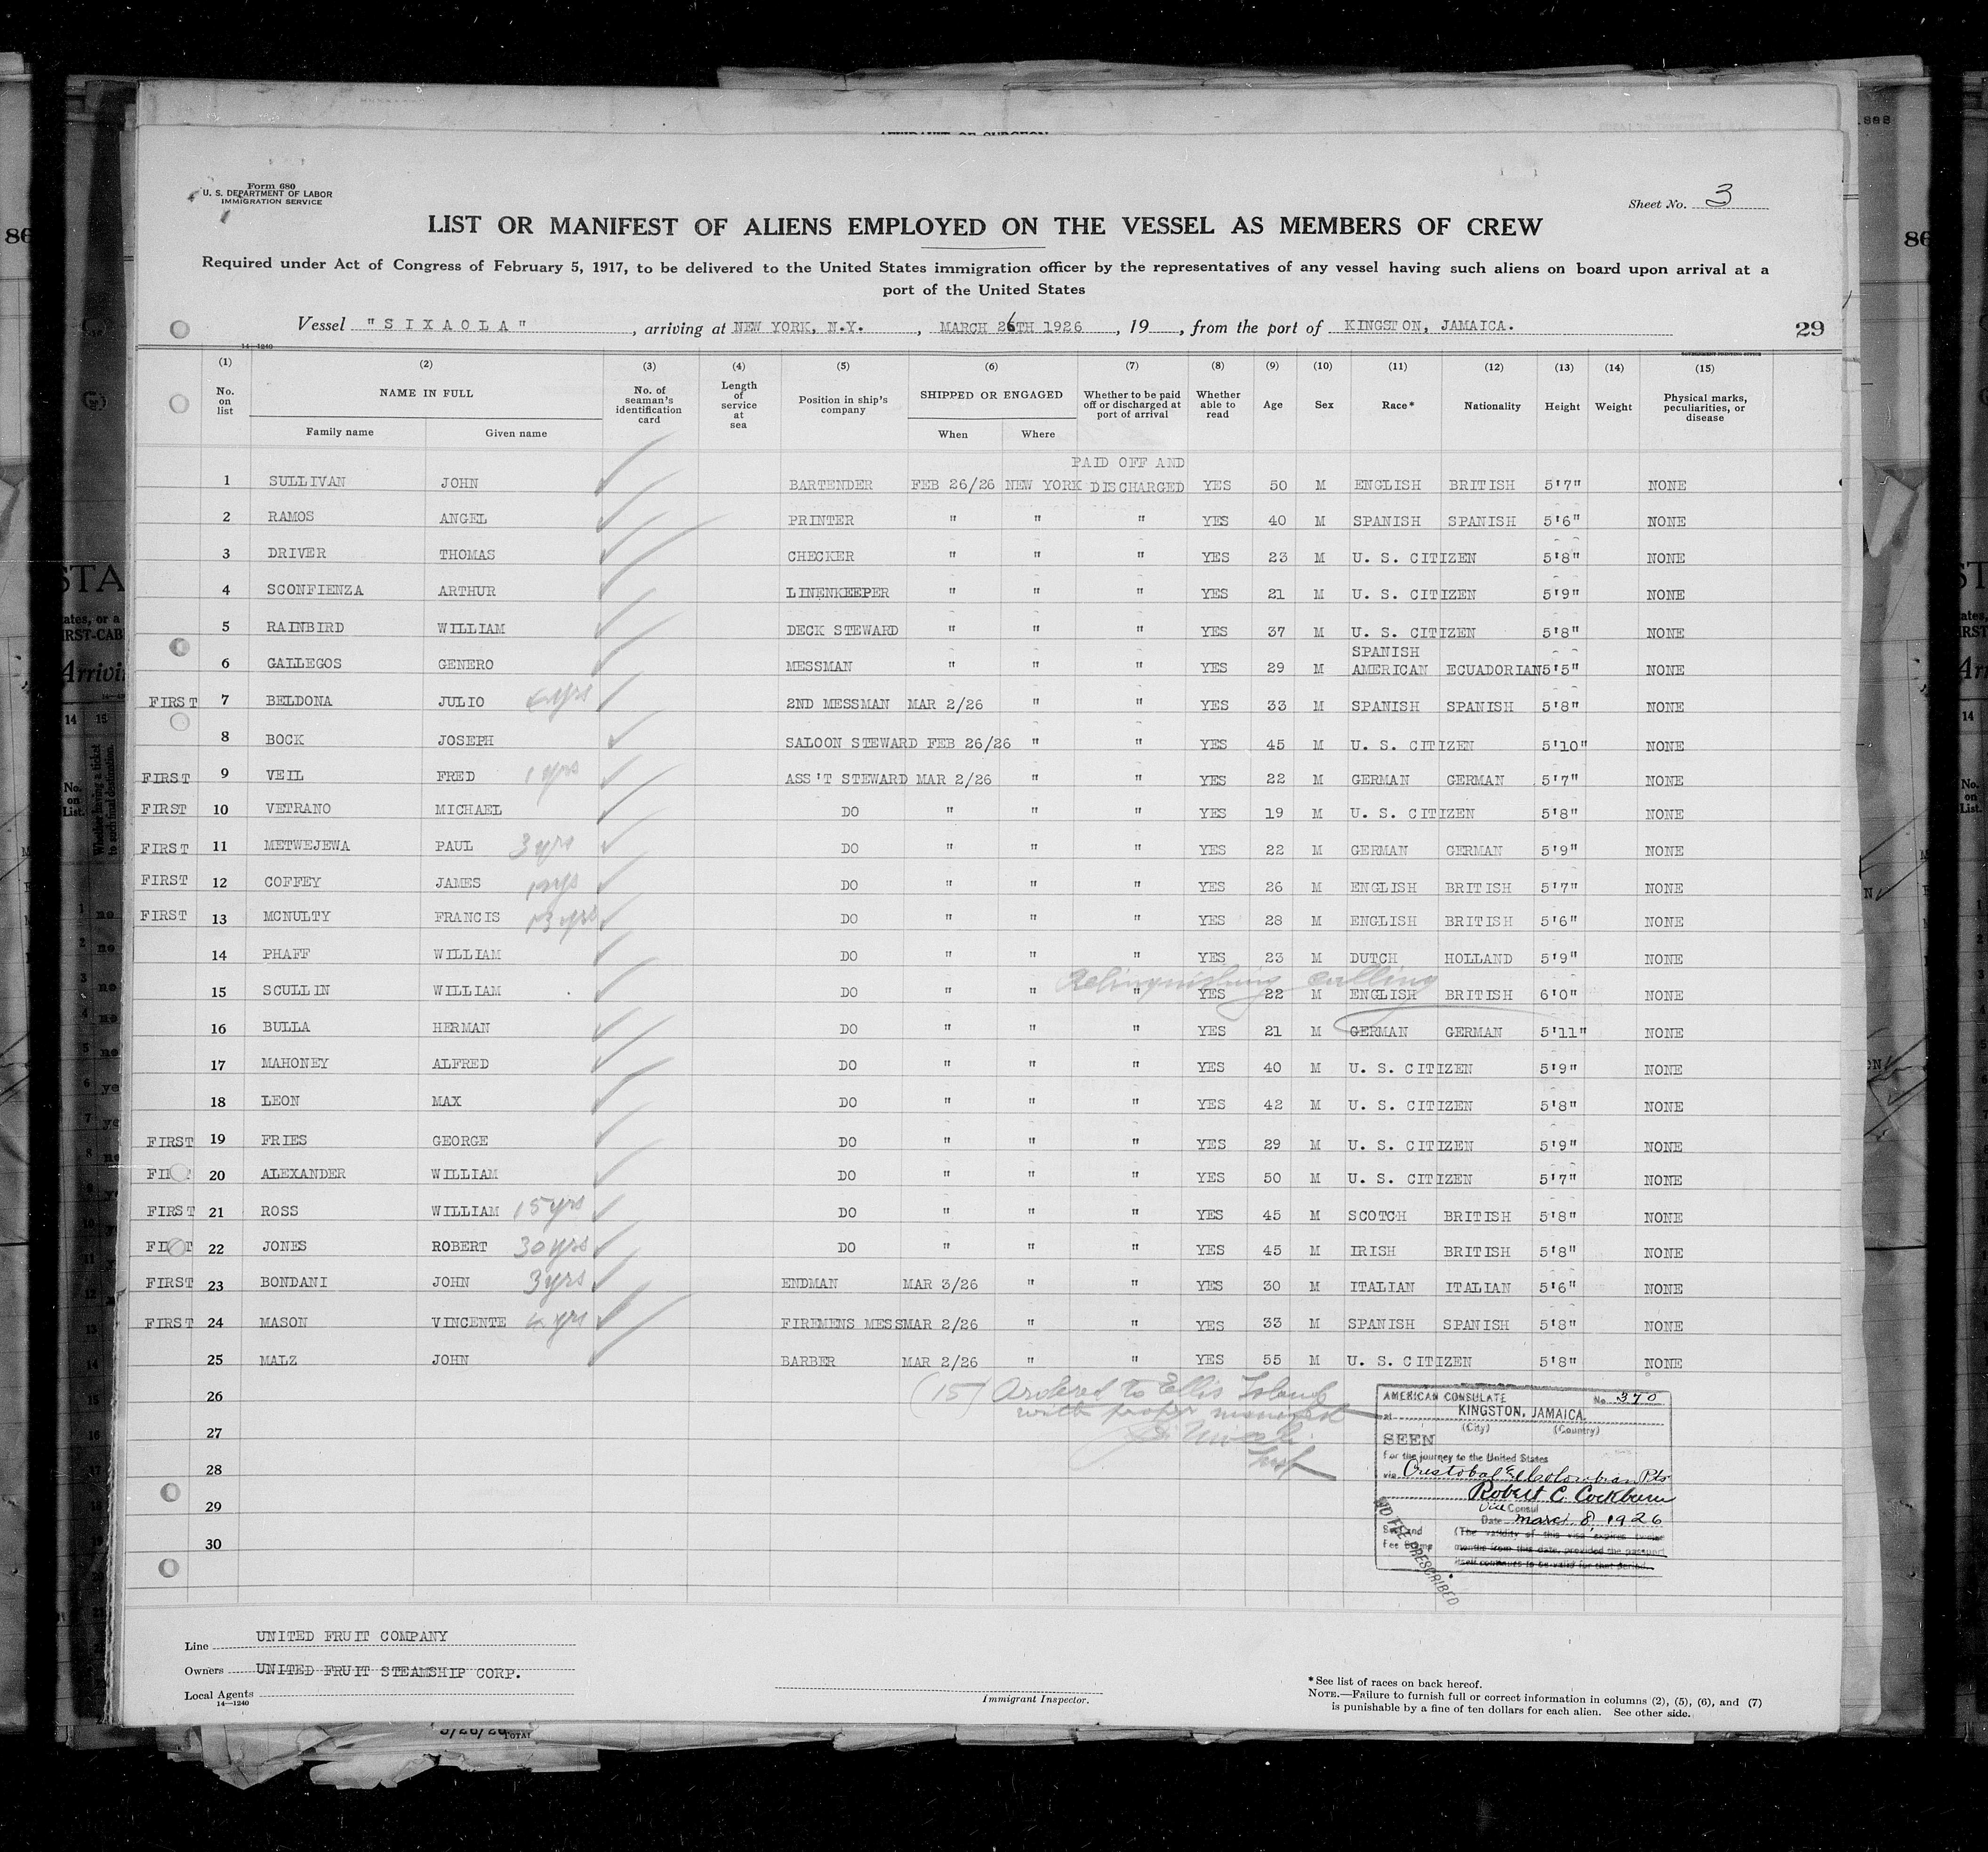 AFFIDAVIT OF SURGEON
Form 680
U. S. DEPARTMENT OF LABOR
IMMIGRATION SERVICE
Sheet No. 3
LIST OR MANIFEST OF ALIENS EMPLOYED ON THE VESSEL AS MEMBERS OF CREW
Required under Act of Congress of February 5, 1917, to be delivered to the United States immigration officer by the representatives of any vessel having such aliens on board upon arrival at a
port of the United States
Vessel "SIXAOLA", arriving at NEW YORK, N.Y., MARCH 26TH 1926, 19, from the port of KINGSTON, JAMAICA.
29
14—1240
GOVERNMENT PRINTING OFFICE
(1) (2) (3) (4) (5) (6) (7) (8) (9) (10) (11) (12) (13) (14) (15)
No. on list NAME IN FULL Family name Given name No. of seaman's identification card Length of service at sea Position in ship's company SHIPPED OR ENGAGED When Where Whether to be paid off or discharged at port of arrival Whether able to read Age Sex Race* Nationality Height Weight Physical marks, peculiarities, or disease
PAID OFF AND
1 SULLIVAN JOHN BARTENDER FEB 26/26 NEW YORK DISCHARGED YES 50 M ENGLISH BRITISH 5'7" NONE
2 RAMOS ANGEL PRINTER " " " YES 40 M SPANISH SPANISH 5'6" NONE
3 DRIVER THOMAS CHECKER " " " YES 23 M U. S. CITIZEN 5'8" NONE
4 SCONFIENZA ARTHUR LINENKEEPER " " " YES 21 M U. S. CITIZEN 5'9" NONE
5 RAINBIRD WILLIAM DECK STEWARD " " " YES 37 M U. S. CITIZEN 5'8" NONE
SPANISH
6 GALLEGOS GENERO MESSMAN " " " YES 29 M AMERICAN ECUADORIAN 5'5" NONE
FIRST 7 BELDONA JULIO 2ND MESSMAN MAR 2/26 " " YES 33 M SPANISH SPANISH 5'8" NONE
8 BOCK JOSEPH SALOON STEWARD FEB 26/26 " " YES 45 M U. S. CITIZEN 5'10" NONE
FIRST 9 VEIL FRED 1 yrs ASS'T STEWARD MAR 2/26 " " YES 22 M GERMAN GERMAN 5'7" NONE
FIRST 10 VETRANO MICHAEL DO " " " YES 19 M U. S. CITIZEN 5'8" NONE
FIRST 11 METWEJEWA PAUL 3 yrs DO " " " YES 22 M GERMAN GERMAN 5'9" NONE
FIRST 12 COFFEY JAMES DO " " " YES 26 M ENGLISH BRITISH 5'7" NONE
FIRST 13 MCNULTY FRANCIS 13 yrs DO " " " YES 28 M ENGLISH BRITISH 5'6" NONE
14 PHAFF WILLIAM DO " " " YES 23 M DUTCH HOLLAND 5'9" NONE
Relinquishing calling
15 SCULLIN WILLIAM DO " " " YES 22 M ENGLISH BRITISH 6'0" NONE
16 BULLA HERMAN DO " " " YES 21 M GERMAN GERMAN 5'11" NONE
17 MAHONEY ALFRED DO " " " YES 40 M U. S. CITIZEN 5'9" NONE
18 LEON MAX DO " " " YES 42 M U. S. CITIZEN 5'8" NONE
FIRST 19 FRIES GEORGE DO " " " YES 29 M U. S. CITIZEN 5'9" NONE
FIRST 20 ALEXANDER WILLIAM DO " " " YES 50 M U. S. CITIZEN 5'7" NONE
FIRST 21 ROSS WILLIAM 15 yrs DO " " " YES 45 M SCOTCH BRITISH 5'8" NONE
FIRST 22 JONES ROBERT 30 yrs DO " " " YES 45 M IRISH BRITISH 5'8" NONE
FIRST 23 BONDANI JOHN 3 yrs ENDMAN MAR 3/26 " " YES 30 M ITALIAN ITALIAN 5'6" NONE
FIRST 24 MASON VINCENTE 4 yrs FIREMENS MESS MAR 2/26 " " YES 33 M SPANISH SPANISH 5'8" NONE
25 MALZ JOHN BARBER MAR 2/26 " " YES 55 M U. S. CITIZEN 5'8" NONE
26 (15) Ordered to Ellis Island
with proper manifest
27
Insp
28
29
30
AMERICAN CONSULATE No. 370
at KINGSTON, JAMAICA.
(City) (Country)
SEEN
For the journey to the United States
via Cristobal & Colombian Pts
Robert C. Cockburn
Vice Consul
Date March 8, 1926
Seal and Fee Stamp
(The validity of this visa expires twelve
months from this date, provided the passport
itself continues to be valid for that period.
NO FEE PRESCRIBED
Line UNITED FRUIT COMPANY
Owners UNITED FRUIT STEAMSHIP CORP.
Local Agents
14—1240
Immigrant Inspector.
*See list of races on back hereof.
NOTE.—Failure to furnish full or correct information in columns (2), (5), (6), and (7)
is punishable by a fine of ten dollars for each alien. See other side.
TOTAL